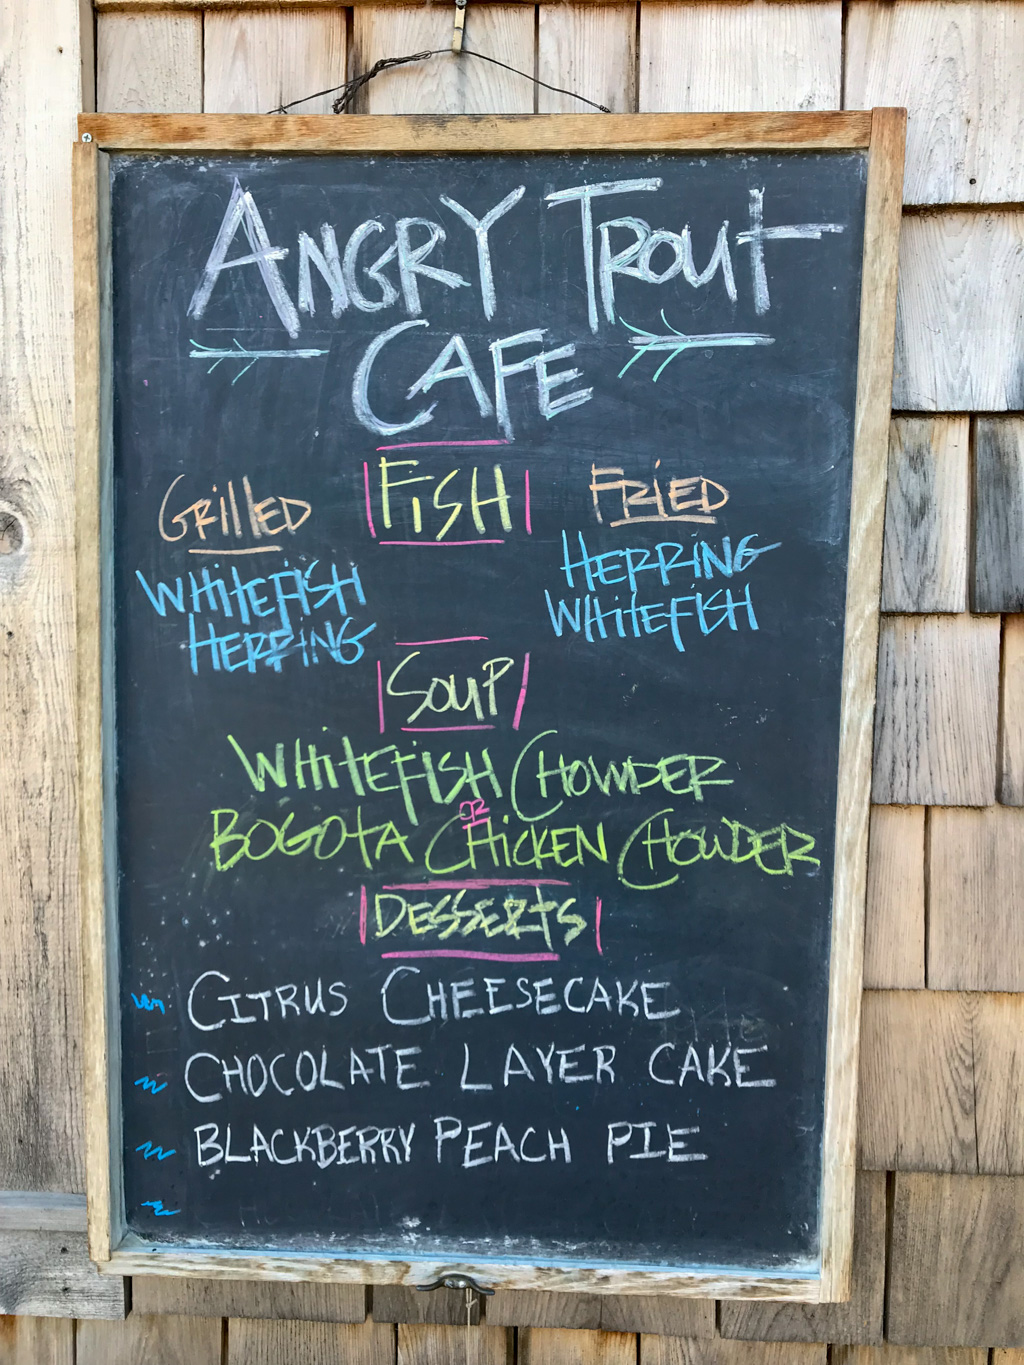 ANGRY TROUT
CAFE
FISH
GRILLED
WHITEFISH
HERRING
FRIED
HERRING
WHITEFISH
SOUP
WHITEFISH CHOWDER
OR
BOGOTA CHICKEN CHOWDER
DESSERTS
CITRUS CHEESECAKE
CHOCOLATE LAYER CAKE
BLACKBERRY PEACH PIE